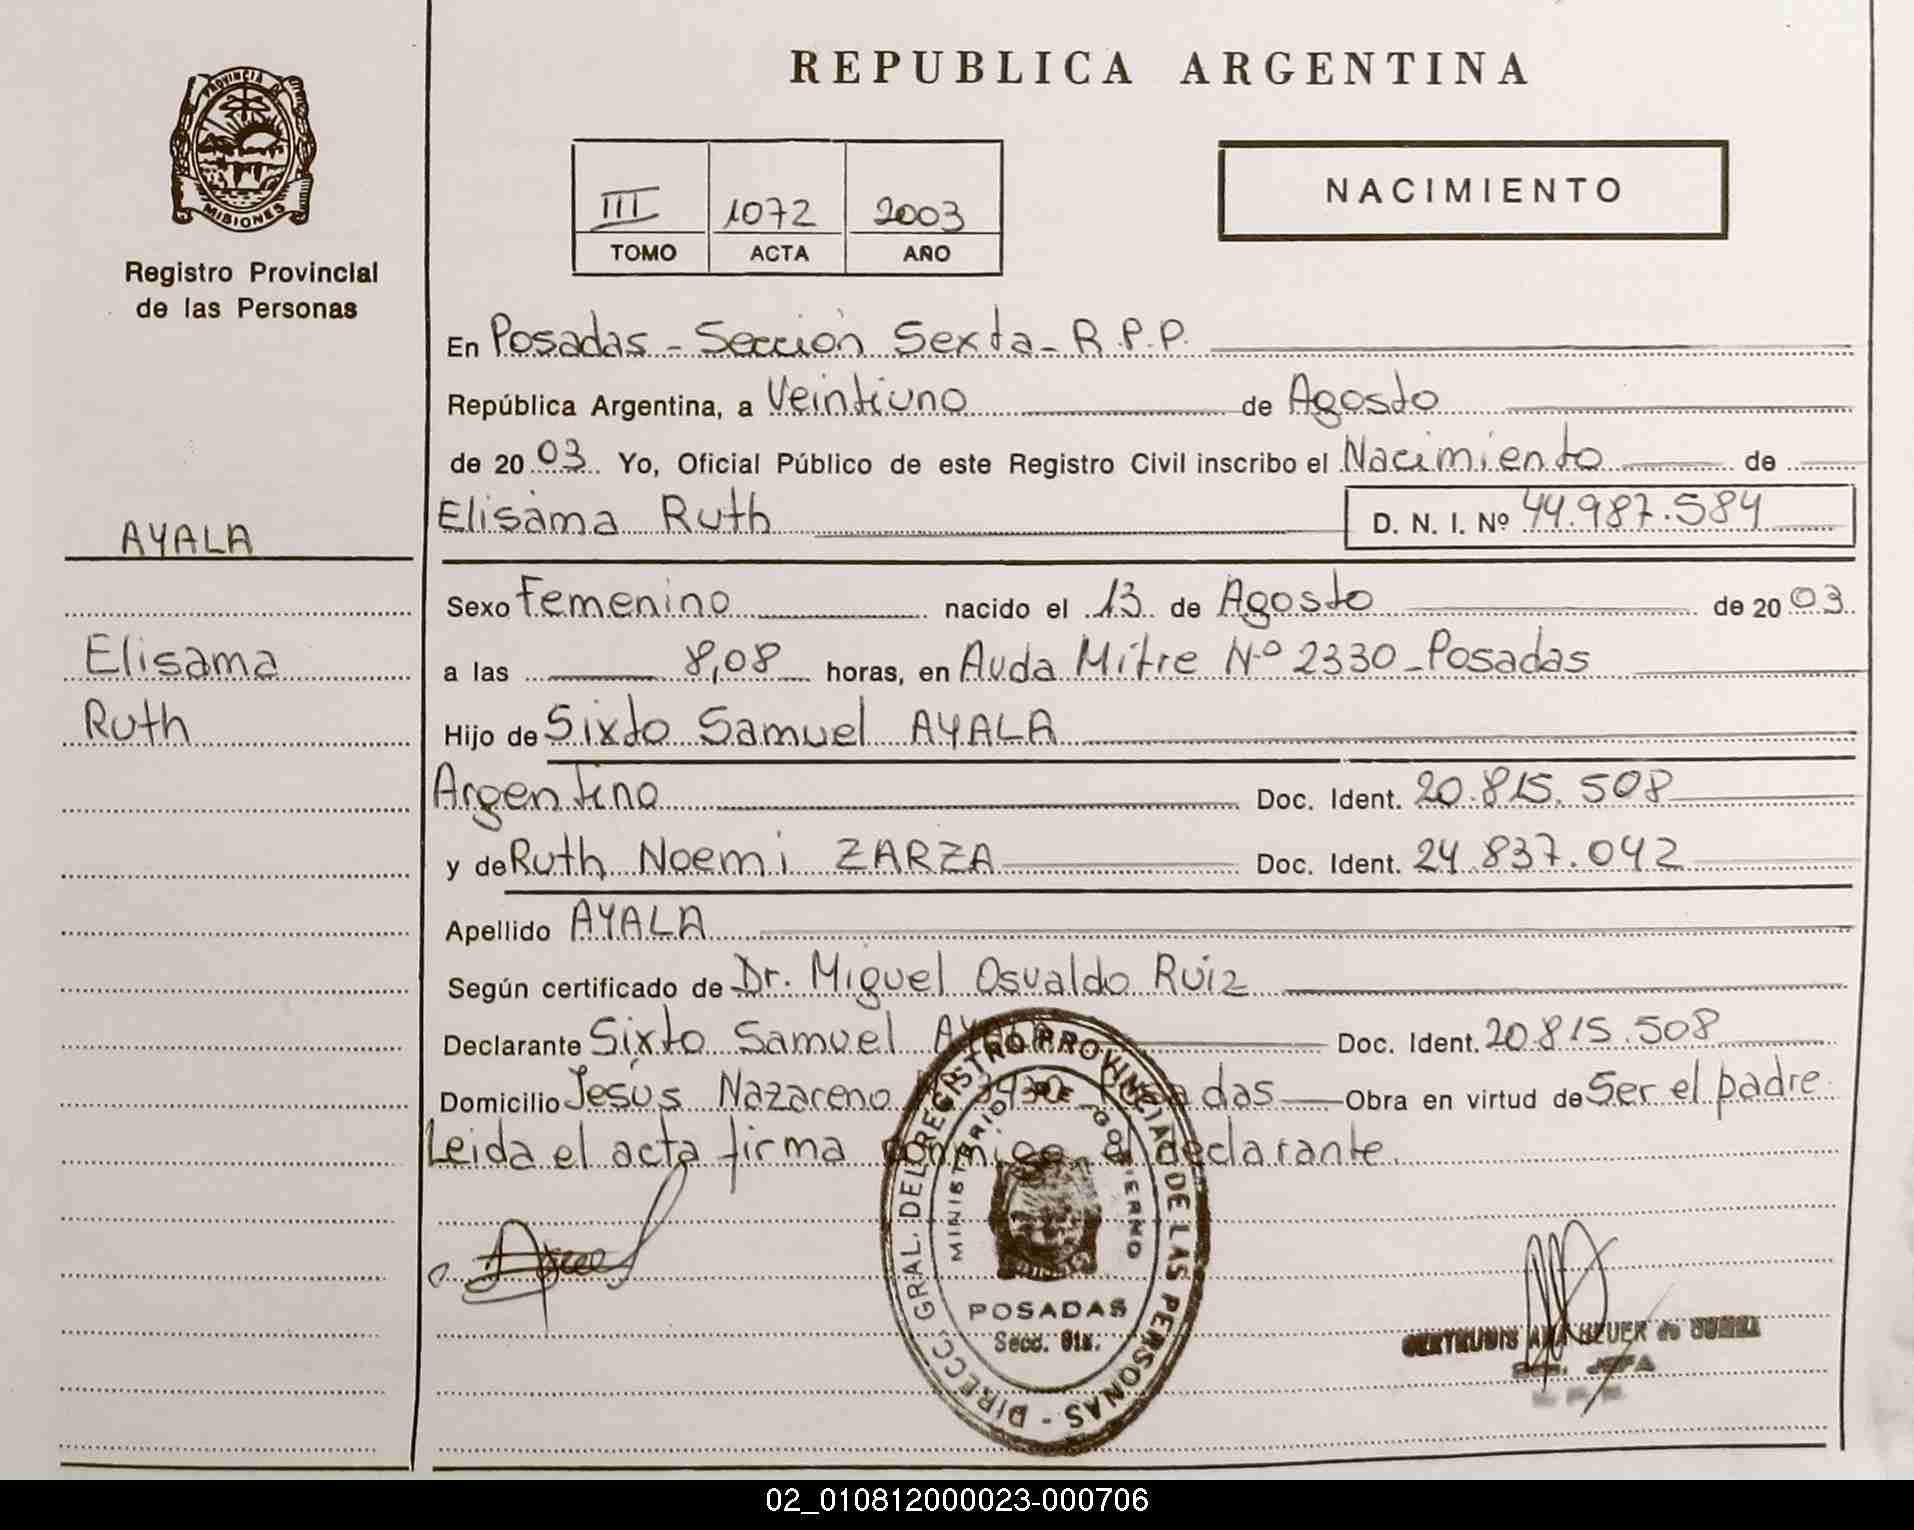 REPUBLICA ARGENTINA
PROVINCIA DE
MISIONES
Registro Provincial
de las Personas
III 1072 2003
TOMO ACTA AÑO
NACIMIENTO
En Posadas - Sección Sexta - R.P.P.
República Argentina, a Veintiuno de Agosto
de 20 03 Yo, Oficial Público de este Registro Civil inscribo el Nacimiento de
Elisama Ruth D. N. I. Nº 44.987.584
AYALA
Elisama
Ruth
Sexo Femenino nacido el 13 de Agosto de 20 03
a las 8,08 horas, en Avda Mitre Nº 2330 - Posadas
Hijo de Sixto Samuel AYALA
Argentino Doc. Ident. 20.815.508
y de Ruth Noemi ZARZA Doc. Ident. 24.837.042
Apellido AYALA
Según certificado de Dr. Miguel Osvaldo Ruiz
Declarante Sixto Samuel AYALA Doc. Ident. 20.815.508
Domicilio Jesús Nazareno Posadas Obra en virtud de Ser el padre
Leida el acta firma conmigo el declarante.
DIRECC. GRAL. DEL REGISTRO PROVINCIAL DE LAS PERSONAS -
MINISTERIO DE GOBIERNO
MISIONES
POSADAS
Secc. 6ta.
GERTRUDIS ANA de
JEFA
02_010812000023-000706